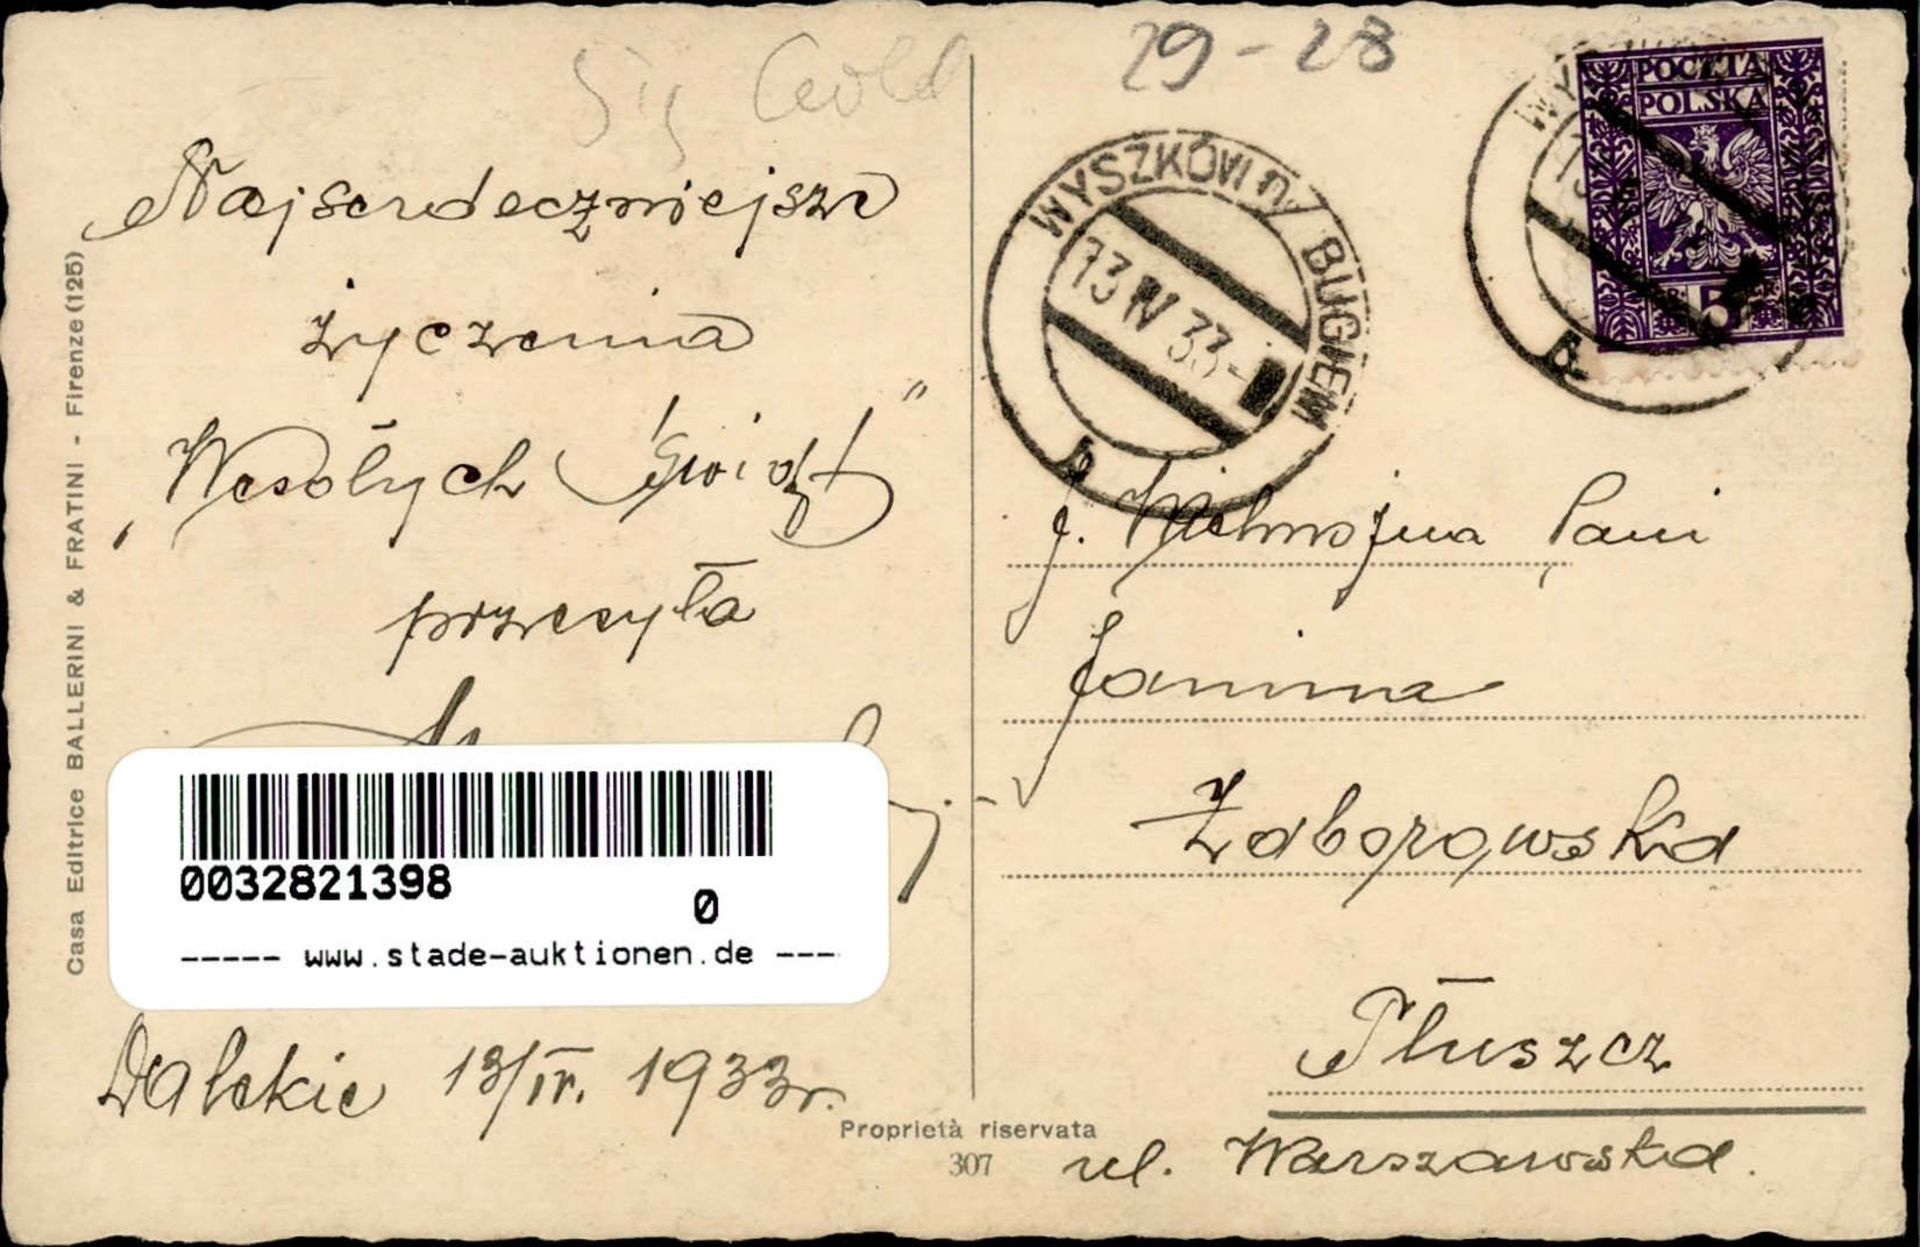 29-28
Najserdeczniejsze
życzenia
„Wesołych Świąt”
przesyła
Dalekie 13/IV. 1933r.
0032821398
0
----- www.stade-auktionen.de ---
Casa Editrice BALLERINI & FRATINI - Firenze (125)
Proprietà riservata
307
WYSZKÓW n/ BUGIEM
13 IV 33
b
POCZTA
POLSKA
5
J. Wielmożna Pani
Janina
Zaborowska
Tłuszcz
ul. Warszawska.